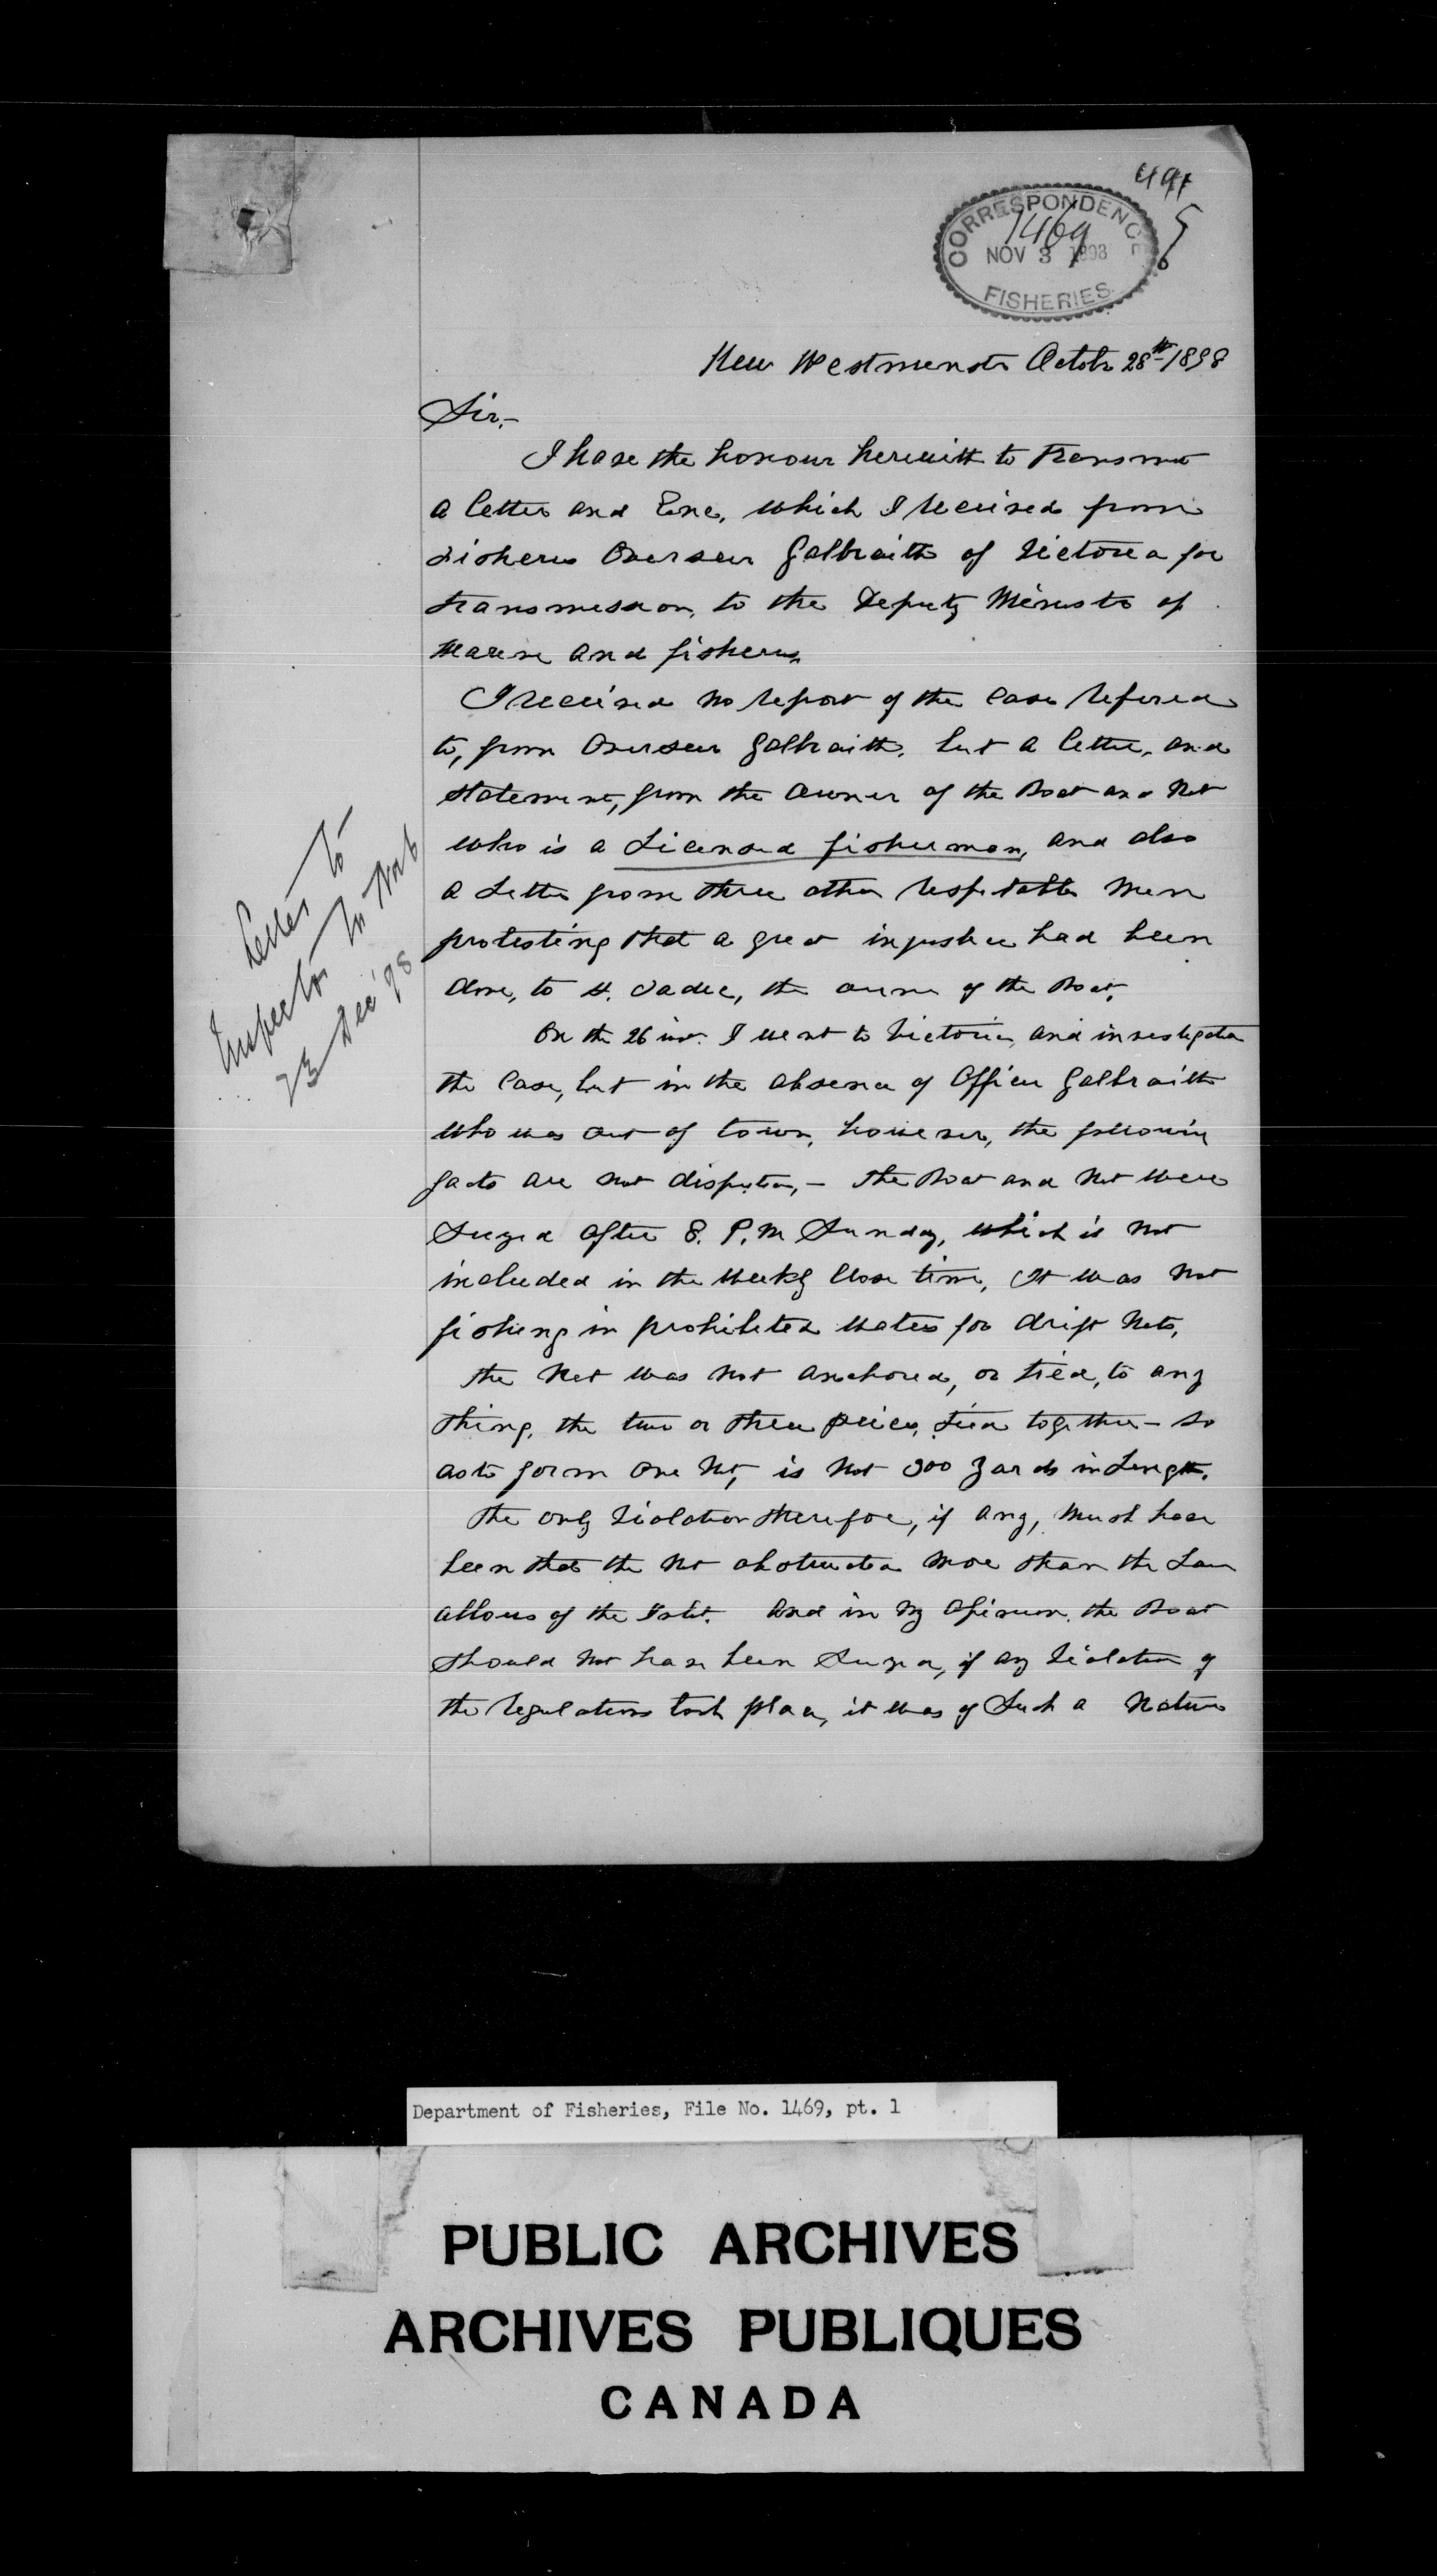 491
CORRESPONDENCE
1469
NOV 3 1898
FISHERIES
New Westminster October 28th 1898
Sir,-
I have the honour herewith to transmit
a letter and Enc, which I received from
Fisheries Overseer Galbraith of Victoria for
transmission, to the Deputy Minister of
Marine and fisheries,
I received no report of the case refered
to, from Overseer Galbraith, but a letter, and
statement, from the owner of the Boat and Net
who is a Licensed fisherman, and also
a Letter from three other respectable men
protesting that a great injustice had been
done, to H. the owner of the Boat,
On the 26 inst. I went to Victoria, and investigated
the case, but in the absence of Officer Galbraith
who was out of town, however, the following
facts are not disputed, - the Boat and Net were
Seized after 8. P.M Sunday, which is not
included in the weekly close time, It was not
fishing in prohibited waters for drift Nets,
the Net was not anchored, or tied, to any
thing, the two or three pieces, tied together - so
as to form one Net, is not 300 yards in Length.
the only Violation therefore, if any, must have
been that the Net obstructed more than the Law
allows of the Inlet. And in my Opinion, the Boat
should not have been Seized, if any Violation of
the regulations took place, it was of Such a Nature
Letter to
Inspector
23 Dec '98
Department of Fisheries, File No. 1469, pt. 1
PUBLIC ARCHIVES
ARCHIVES PUBLIQUES
CANADA